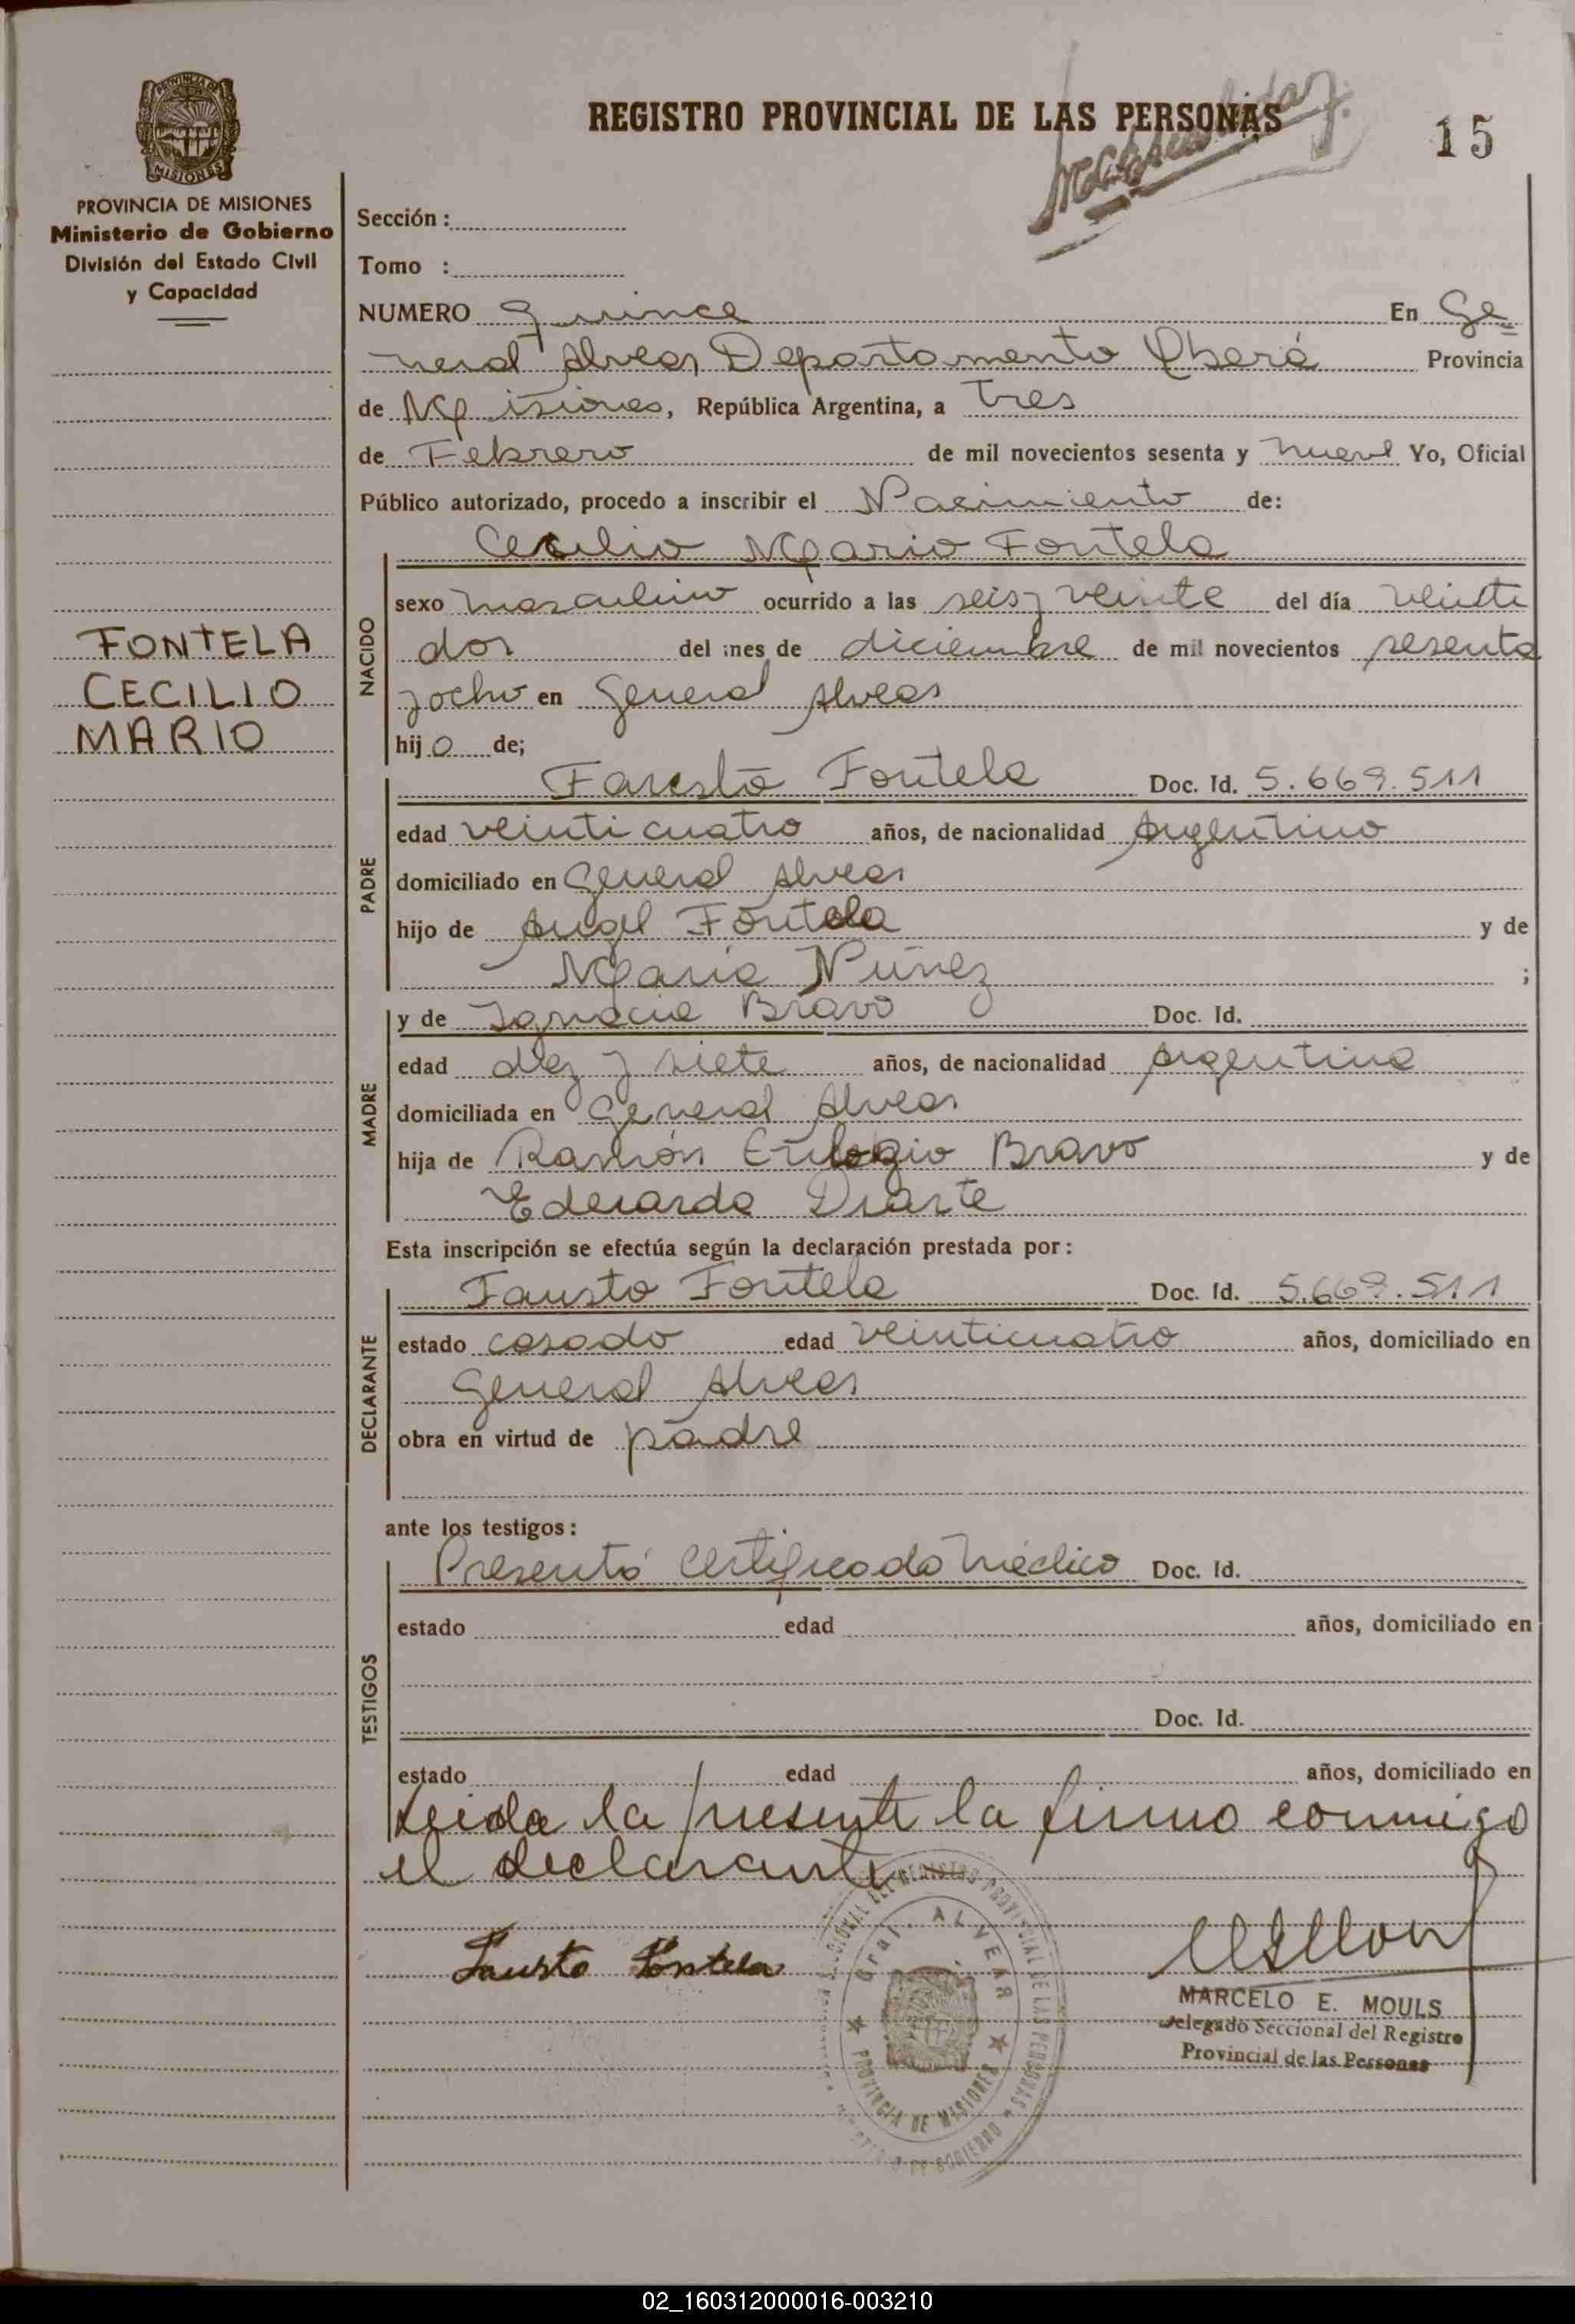 REGISTRO PROVINCIAL DE LAS PERSONAS
15
PROVINCIA DE MISIONES
PROVINCIA DE MISIONES
Ministerio de Gobierno
División del Estado Civil
y Capacidad
Sección :
Tomo :
NUMERO Quince En Ge=
neral Alvear Departamento Oberá Provincia
de Misiones, República Argentina, a Tres
de Febrero de mil novecientos sesenta y nueve Yo, Oficial
Público autorizado, procedo a inscribir el Nacimiento de:
Cecilio Mario Fontela
NACIDO
sexo masculino ocurrido a las seis y veinte del día veinti
dos del mes de diciembre de mil novecientos sesenta
y ocho en General Alvear
hijo de;
FONTELA
CECILIO
MARIO
PADRE
Fausto Fontela Doc. Id. 5.669.511
edad veinticuatro años, de nacionalidad Argentino
domiciliado en General Alvear
hijo de Angel Fontela y de
Maria Nuñez ;
MADRE
y de Ignacia Bravo Doc. Id.
edad diez y siete años, de nacionalidad Argentina
domiciliada en General Alvear
hija de Ramón Eulogio Bravo y de
Duarte
Esta inscripción se efectúa según la declaración prestada por:
DECLARANTE
Fausto Fontela Doc. Id. 5.669.511
estado casado edad veinticuatro años, domiciliado en
General Alvear
obra en virtud de padre
ante los testigos:
TESTIGOS
Presentó Certificado Médico Doc. Id.
estado edad años, domiciliado en
Doc. Id.
estado edad años, domiciliado en
Leida la presente la firma conmigo
el declarante
Fausto Fontela
Gral. ALVEAR
PROVINCIA DE MISIONES
MARCELO E. MOULS
Delegado Seccional del Registro
Provincial de las Personas
02_160312000016-003210